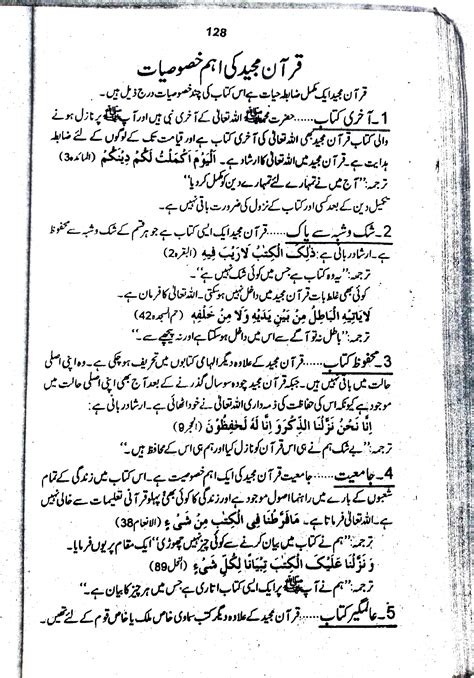 128
قرآن مجید کی اہم خصوصیات
قرآن مجید ایک مکمل ضابطہ حیات ہے اس کتاب کی چند خصوصیات درج ذیل ہیں۔
1۔آخری کتاب......حضرت محمدﷺ اللہ تعالیٰ کے آخری نبی ہیں اور آپﷺ پر نازل ہونے
والی کتاب قرآن مجید بھی اللہ تعالیٰ کی آخری کتاب ہے اور قیامت تک کے لوگوں کے لئے ضابطہ
ہدایت ہے۔ قرآن مجید میں اللہ تعالیٰ کا ارشاد ہے۔ اَلْیَوْمَ اَکْمَلْتُ لَکُمْ دِیْنَکُمْ (المائدہ3)
ترجمہ:’’آج میں نے تمہارے لئے تمہارے دین کو مکمل کر دیا‘‘
تکمیل دین کے بعد کسی اور کتاب کے نزول کی ضرورت باقی نہیں ہے۔
2۔شک و شبہ سے پاک......قرآن مجید ایک ایسی کتاب ہے جو ہر قسم کے شک و شبہ سے محفوظ
ہے۔ ارشاد ربانی ہے: ذٰلِکَ الْکِتٰبُ لَارَیْبَ فِیْهِ (البقرہ2)
ترجمہ:’’یہ وہ کتاب ہے جس میں کوئی شک نہیں ہے‘‘
کوئی بھی غلط بات قرآن مجید میں داخل نہیں ہو سکتی۔ اللہ تعالیٰ کا فرمان ہے۔
لَایَاتِیْهِ الْبَاطِلُ مِنْ بَیْنِ یَدَیْهِ وَلَا مِنْ خَلْفِهٖ (حم السجدہ42)
ترجمہ:’’باطل نہ تو آگے سے اس میں داخل ہو سکتا ہے اور نہ پیچھے سے‘‘۔
3۔محفوظ کتاب......قرآن مجید کے علاوہ دیگر الہامی کتابوں میں تحریف ہو چکی ہے۔ وہ اپنی اصلی
حالت میں باقی نہیں ہیں۔ جبکہ قرآن مجید چودہ سو سال گذرنے کے بعد آج بھی اپنی اصلی حالت میں
موجود ہے کیونکہ اس کی حفاظت کی ذمہ داری اللہ تعالیٰ نے خود اٹھائی ہے۔ ارشاد ربانی ہے:
اِنَّا نَحْنُ نَزَّلْنَا الذِّکْرَ وَ اِنَّا لَهٗ لَحٰفِظُوْنَ (الحجر9)
ترجمہ:’’بے شک ہم نے ہی اس قرآن کو نازل کیا اور ہم ہی اس کے محافظ ہیں۔‘‘
4۔جامعیت......جامعیت قرآن مجید کی ایک اہم خصوصیت ہے۔ اس کتاب میں زندگی کے تمام
شعبوں کے بارے میں راہنما اصول موجود ہے اور زندگی کا کوئی بھی پہلو قرآنی تعلیمات سے خالی نہیں
ہے۔ اللہ تعالیٰ فرماتا ہے۔ مَافَرَّطْنَا فِی الْکِتٰبِ مِنْ شَیْءٍ (الانعام38)
ترجمہ:’’ہم نے کتاب میں بیان کرنے سے کوئی چیز نہیں چھوڑی‘‘ ایک مقام پر یوں فرمایا۔
وَ نَزَّلْنَا عَلَیْکَ الْکِتٰبَ تِبْیَانًا لِکُلِّ شَیْءٍ (النحل89)
ترجمہ:’’ہم نے آپﷺ پر ایک ایسی کتاب اتاری ہے جس میں ہر چیز کا بیان ہے۔‘‘
5۔عالمگیر کتاب......قرآن مجید کے علاوہ دیگر کتب سماوی خاص ملک یا خاص قوم کے لئے تھیں۔